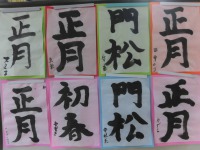 正月
正月
門松
正月
正月
初春
門松
正月